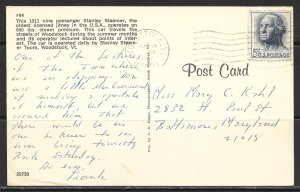 #94
This 1911 nine passenger Stanley Steamer, the
oldest licensed jitney in the U.S.A., operates on
600 lbs. steam pressure. This car travels the
streets of Woodstock during the summer months
and its operator lectures about points of inter-
est. The car is operated daily by Stanley Steam-
er Tours, Woodstock, Vt.
5¢ U.S. POSTAGE
Post Card
One of the features
of the town where
we are shopping. Don
was a little embarrassed
at making a spectacle
of himself, but we
assured him that
there would be no
one he knew to see
him being touristy.
Back Saturday.
As ever,
Frank
Miss Mary C. Kohl
2832 St Paul St
Baltimore, Maryland
21218
29750